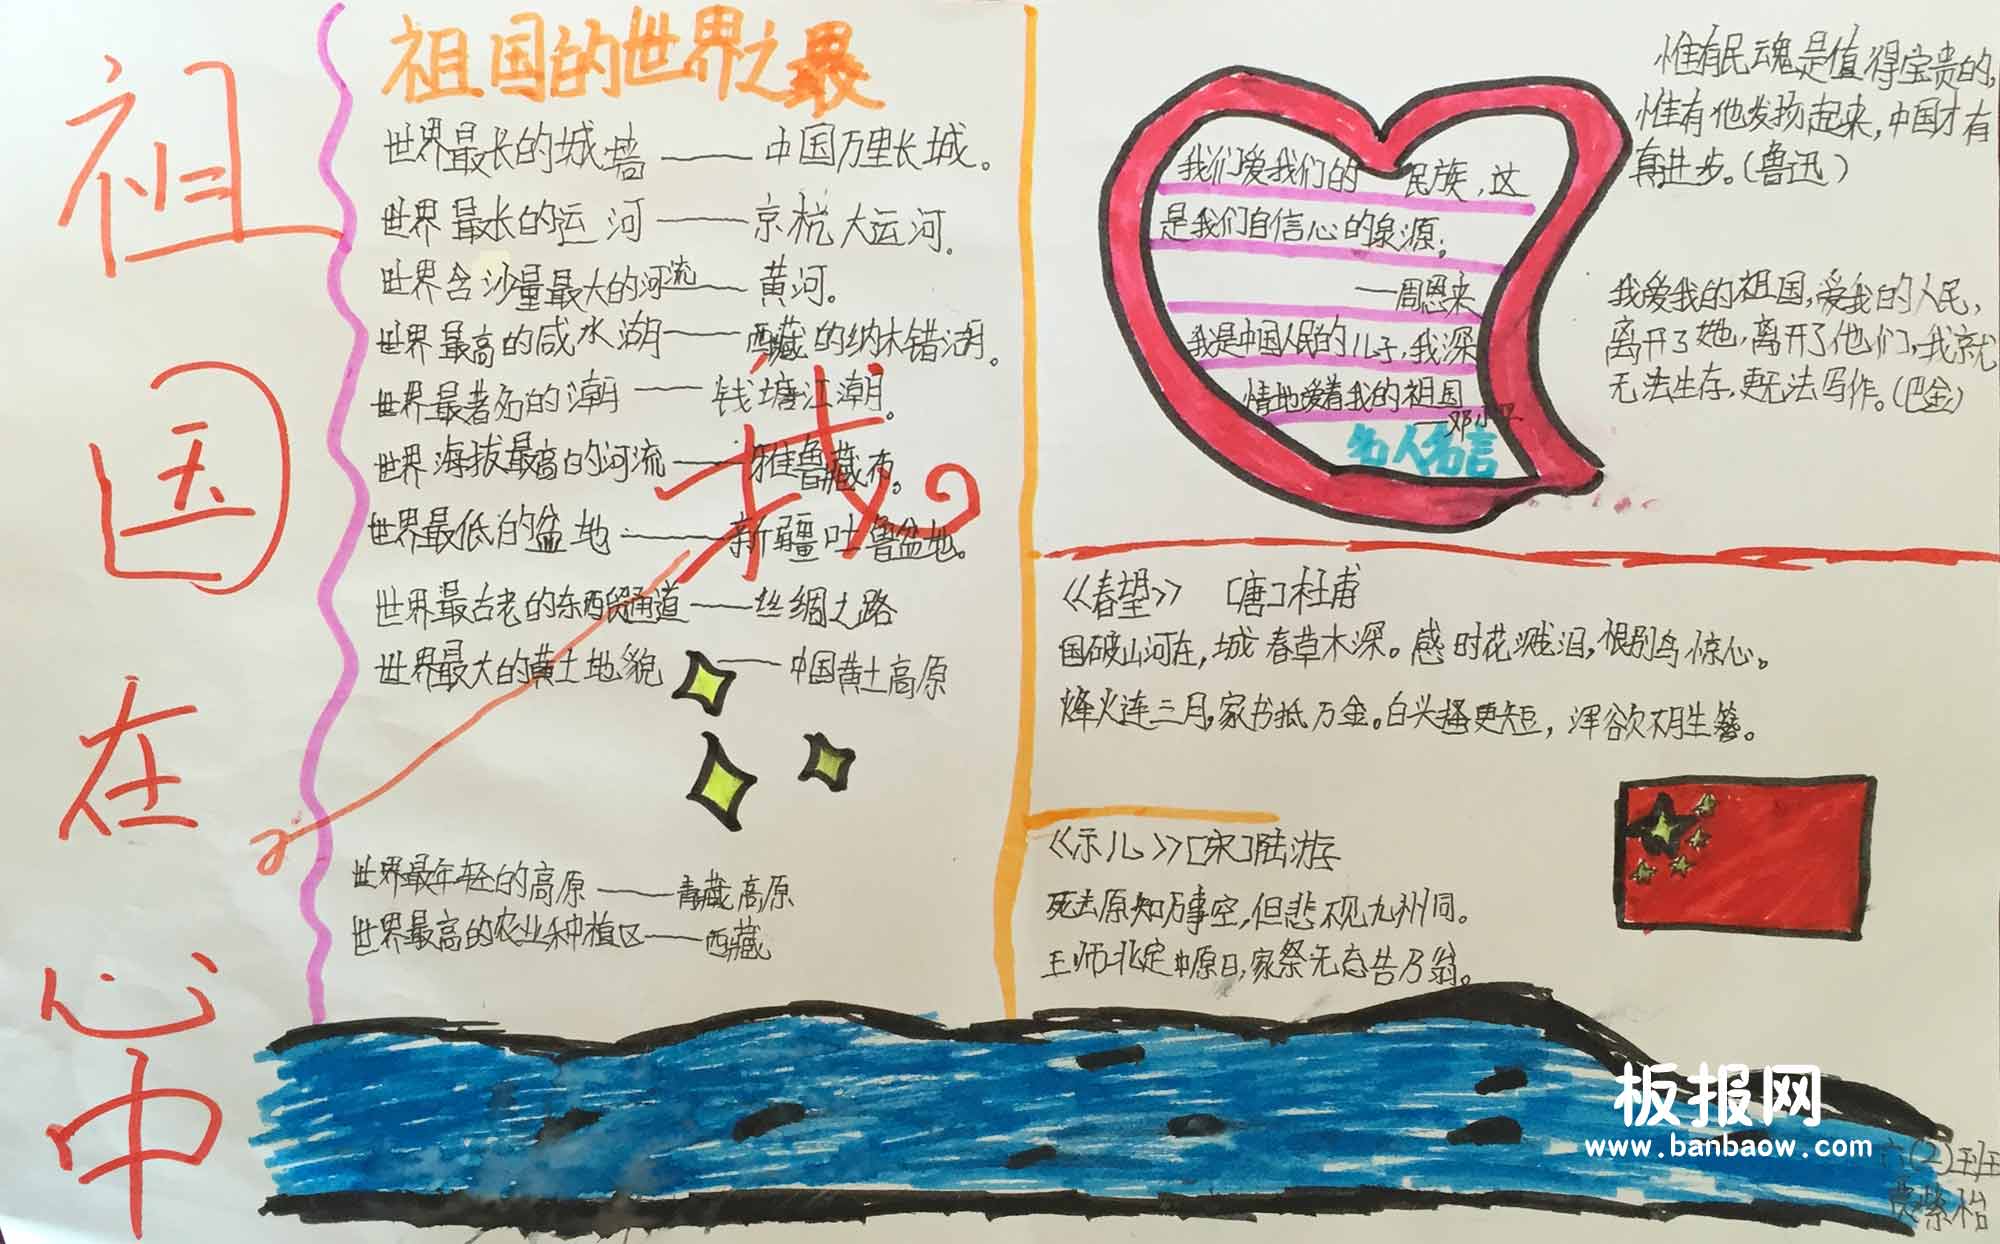 祖国在我心中
祖国的世界之最
世界最长的城墙——中国万里长城。
世界最长的运河——京杭大运河。
世界含沙量最大的河流——黄河。
世界最高的咸水湖——西藏的纳木错湖。
世界最著名的潮——钱塘江潮。
世界海拔最高的河流——雅鲁藏布。
世界最低的盆地——新疆吐鲁盆地。
世界最古老的东西贸通道——丝绸之路
世界最大的黄土地貌——中国黄土高原
世界最年轻的高原——青藏高原
世界最高的农业种植区——西藏
我们爱我们的民族，这
是我们自信心的泉源；
——周恩来
我是中国人民的儿子，我深
情地爱着我的祖国
——邓小平
名人名言
惟有民魂是值得宝贵的，
惟有他发扬起来，中国才有
真进步。（鲁迅）
我爱我的祖国，爱我的人民，
离开了她，离开了他们，我就
无法生存，更无法写作。（巴金）
《春望》 [唐]杜甫
国破山河在，城春草木深。感时花溅泪，恨别鸟惊心。
烽火连三月，家书抵万金。白头搔更短，浑欲不胜簪。
《示儿》[宋]陆游
死去原知万事空，但悲不见九州同。
王师北定中原日，家祭无忘告乃翁。
板报网
www.banbaow.com
六(2)班
紫怡